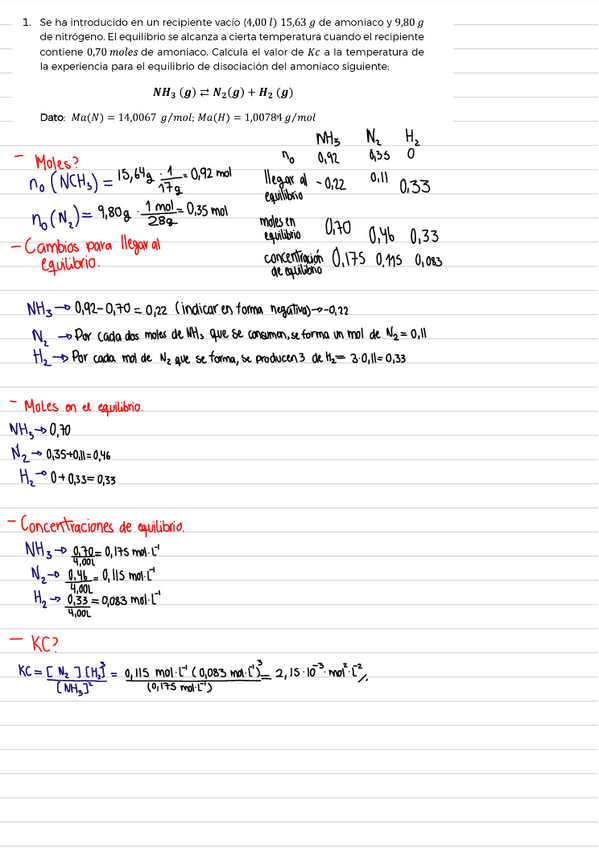 1. Se ha introducido en un recipiente vacío (4,00 l) 15,63 g de amoniaco y 9,80 g
de nitrógeno. El equilibrio se alcanza a cierta temperatura cuando el recipiente
contiene 0,70 moles de amoniaco. Calcula el valor de Kc a la temperatura de
la experiencia para el equilibrio de disociación del amoniaco siguiente:
NH₃ (g) ⇄ N₂(g) + H₂ (g)
Dato: Ma(N) = 14,0067 g/mol; Ma(H) = 1,00784 g/mol
NH₃ N₂ H₂
n₀ 0,92 0,35 0
llegar al equilibrio -0,22 0,11 0,33
moles en equilibrio 0,70 0,46 0,33
concentración de equilibrio 0,175 0,115 0,083
- Moles?
n₀ (NCH₃) = 15,64g · 1/17g = 0,92 mol
n₀(N₂) = 9,80g · 1 mol/28g = 0,35 mol
- Cambios para llegar al
equilibrio.
NH₃ → 0,92-0,70 = 0,22 (indicar en forma negativa) → -0,22
N₂ → Por cada dos moles de NH₃ que se consuman, se forma un mol de N₂ = 0,11
H₂ → Por cada mol de N₂ que se forma, se producen 3 de H₂ = 3·0,11 = 0,33
- Moles en el equilibrio.
NH₃ → 0,70
N₂ → 0,35+0,11 = 0,46
H₂ → 0 + 0,33 = 0,33
- Concentraciones de equilibrio.
NH₃ → 0,70/4,00L = 0,175 mol·L⁻¹
N₂ → 0,46/4,00L = 0,115 mol·L⁻¹
H₂ → 0,33/4,00L = 0,083 mol·L⁻¹
- KC?
KC = [N₂][H₂]³/[NH₃]² = 0,115 mol·L⁻¹ (0,083 mol·L⁻¹)³/(0,175 mol·L⁻¹) = 2,15·10⁻³ mol²·L⁻²//